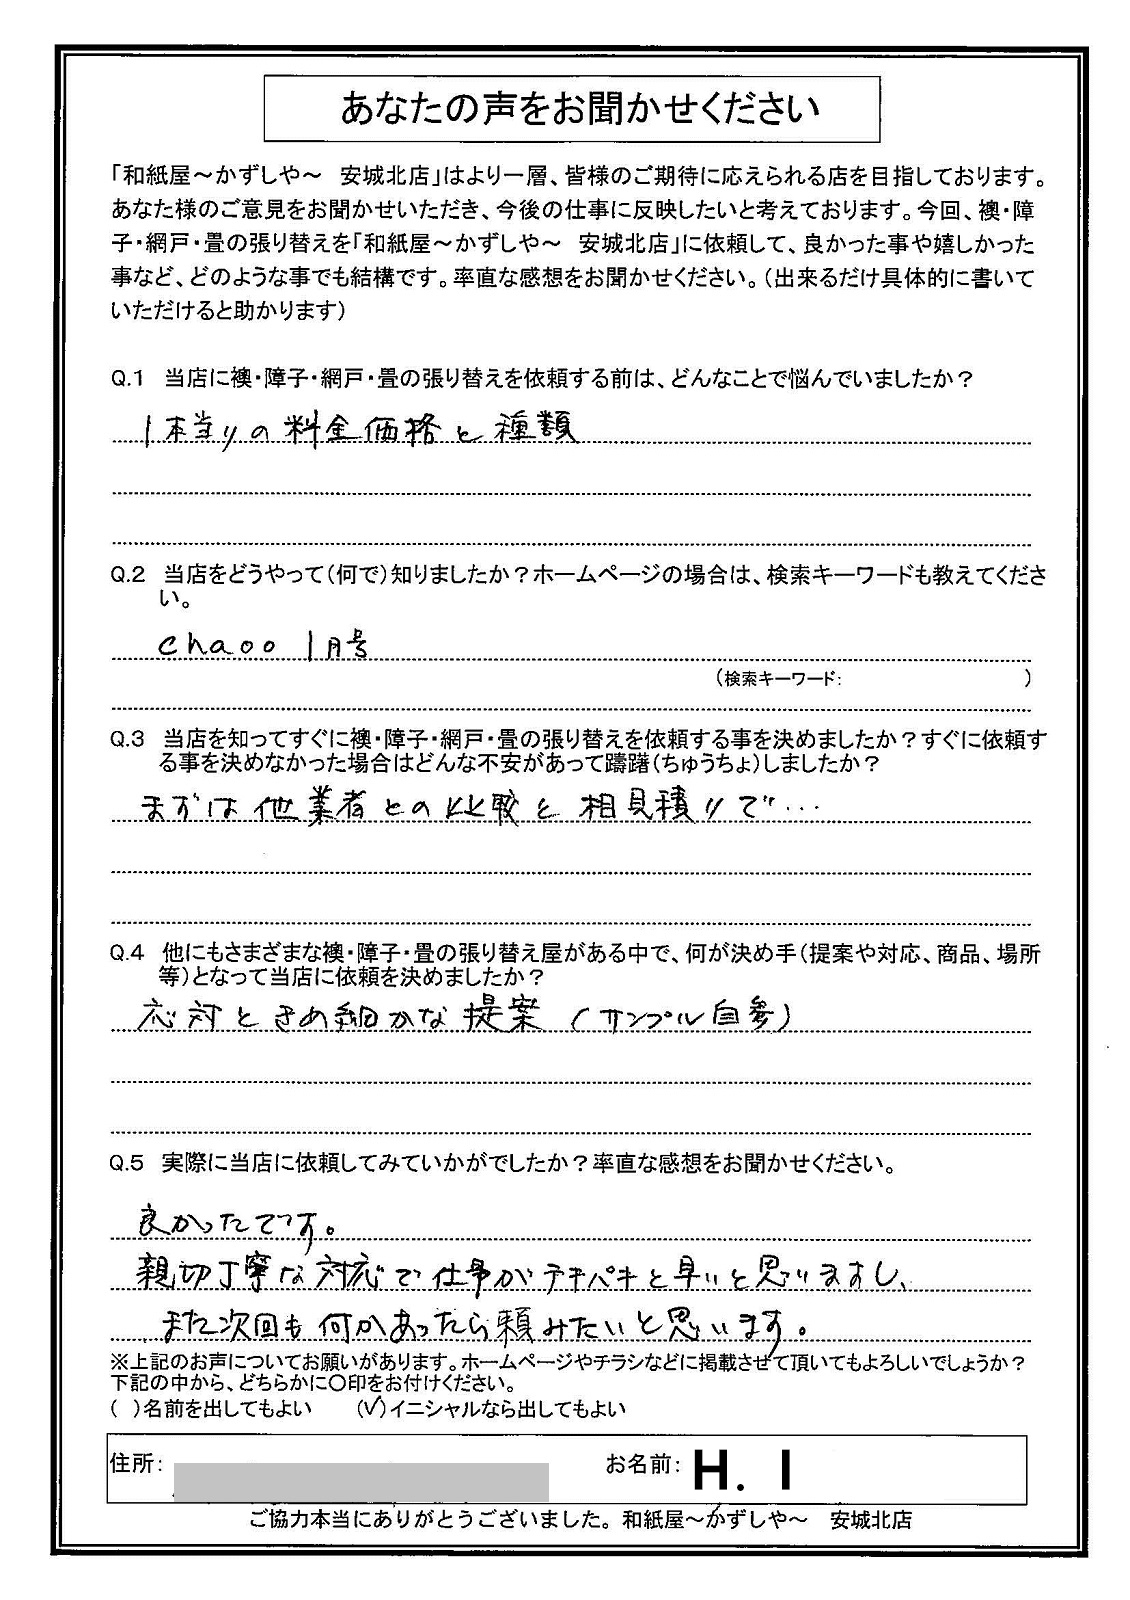 あなたの声をお聞かせください
「和紙屋～かずしや～　安城北店」はより一層、皆様のご期待に応えられる店を目指しております。
あなた様のご意見をお聞かせいただき、今後の仕事に反映したいと考えております。今回、襖・障
子・網戸・畳の張り替えを「和紙屋～かずしや～　安城北店」に依頼して、良かった事や嬉しかった
事など、どのような事でも結構です。率直な感想をお聞かせください。（出来るだけ具体的に書いて
いただけると助かります）
Q.1　当店に襖・障子・網戸・畳の張り替えを依頼する前は、どんなことで悩んでいましたか？
1本当りの料金価格と種類
Q.2　当店をどうやって（何で）知りましたか？ホームページの場合は、検索キーワードも教えてくださ
い。
chaoo 1月号
（検索キーワード：　　　　　　　　　）
Q.3　当店を知ってすぐに襖・障子・網戸・畳の張り替えを依頼する事を決めましたか？すぐに依頼す
る事を決めなかった場合はどんな不安があって躊躇（ちゅうちょ）しましたか？
まずは他業者との比較と相見積りで…
Q.4　他にもさまざまな襖・障子・畳の張り替え屋がある中で、何が決め手（提案や対応、商品、場所
等）となって当店に依頼を決めましたか？
応対ときめ細かな提案（サンプル自参）
Q.5　実際に当店に依頼してみていかがでしたか？率直な感想をお聞かせください。
良かったてです。
親切丁寧な対応で仕事がテキパキと早いと思いますし、
また次回も何かあったら頼みたいと思います。
※上記のお声についてお願いがあります。ホームページやチラシなどに掲載させて頂いてもよろしいでしょうか？
下記の中から、どちらかに〇印をお付けください。
（　）名前を出してもよい　　（✓）イニシャルなら出してもよい
住所：　　お名前：H. I
ご協力本当にありがとうございました。和紙屋～かずしや～　安城北店